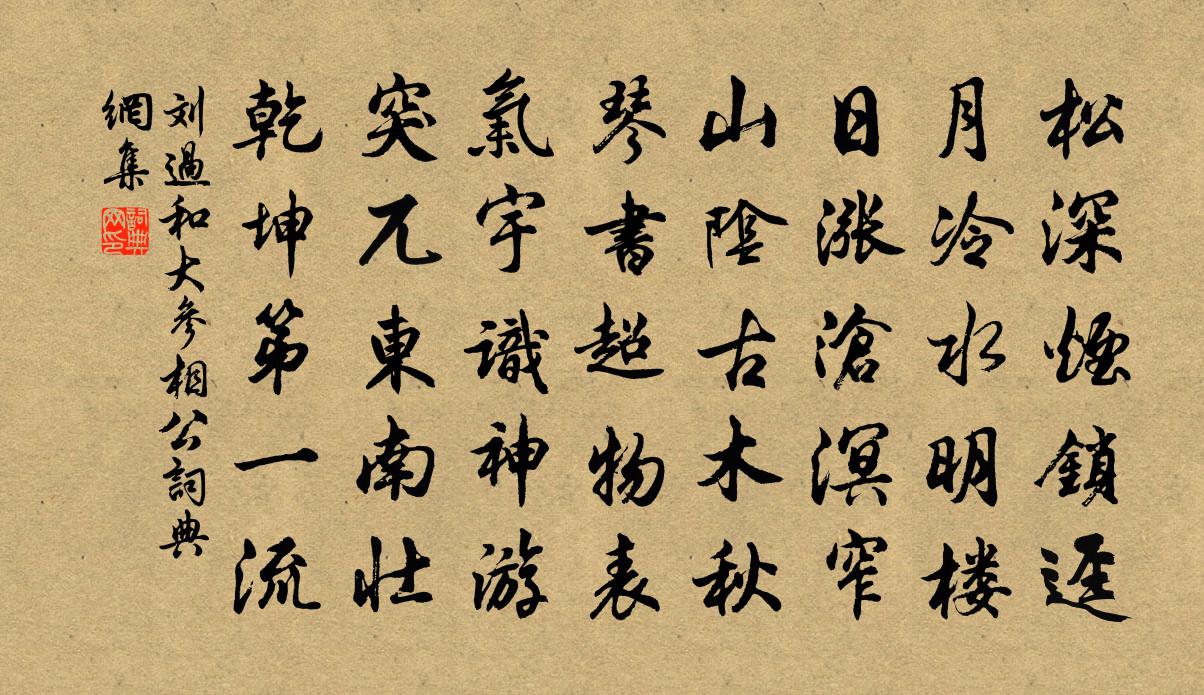 松深煙鎖逕
月冷水明楼
日漲滄溟窄
山陰古木秋
琴書超物表
氣宇識神游
突兀東南壮
乾坤第一流
刘過和大參相公詞典
網集
詞典網印